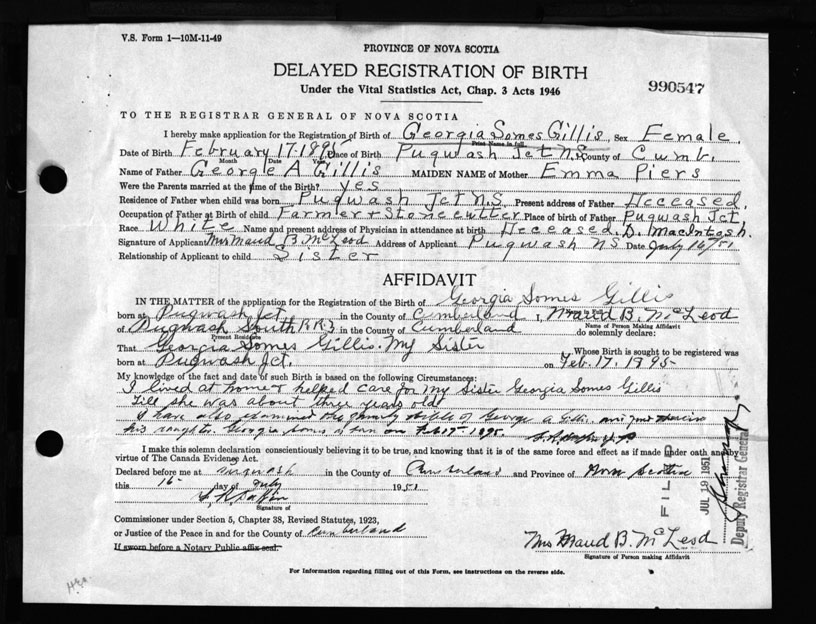 V.S. Form 1—10M-11-49
PROVINCE OF NOVA SCOTIA
DELAYED REGISTRATION OF BIRTH
Under the Vital Statistics Act, Chap. 3 Acts 1946
990547
TO THE REGISTRAR GENERAL OF NOVA SCOTIA
I hereby make application for the Registration of Birth of Georgia Somes Gillis, Sex Female.
Print Name in full
Date of Birth February 17. 1895 Place of Birth Pugwash Jct N.S. County of Cumb.
Month Date Year
Name of Father George A Gillis MAIDEN NAME of Mother Emma Piers
Were the Parents married at the time of the Birth? Yes
Residence of Father when child was born Pugwash Jct N.S. Present address of Father Deceased.
Occupation of Father at Birth of child Farmer + Stonecutter Place of birth of Father Pugwash Jct
Race White Name and present address of Physician in attendance at birth Deceased. D. MacIntosh.
Signature of Applicant Mrs Maud B. McLeod Address of Applicant Pugwash NS Date July 16/51
Relationship of Applicant to child Sister
AFFIDAVIT
IN THE MATTER of the application for the Registration of the Birth of Georgia Somes Gillis
born at Pugwash Jct. in the County of Cumberland I, Maud B. McLeod
Name of Person Making Affidavit
of Pugwash South R.R.3 in the County of Cumberland do solemnly declare:
Present Residence
That Georgia Somes Gillis. My Sister Whose Birth is sought to be registered was
born at Pugwash Jct. on Feb. 17, 1895
My knowledge of the fact and date of such Birth is based on the following Circumstances:
I lived at home + helped care for my sister Georgia Somes Gillis
till she was about three years old.
I have also examined the family bible of George A Gillis. and find therein
his daughter. Georgia Somes is born on Feb 17-1895.
I make this solemn declaration conscientiously believing it to be true, and knowing that it is of the same force and effect as if made under oath and by
virtue of The Canada Evidence Act.
Declared before me at Pugwash in the County of Cumberland and Province of Nova Scotia
this 16 day of July 1951
Signature of
Commissioner under Section 5, Chapter 38, Revised Statutes, 1923,
or Justice of the Peace in and for the County of Cumberland
If sworn before a Notary Public affix seal.
Mrs Maud B. McLeod
Signature of Person making Affidavit
FILED
JUL 19 1951
Deputy Registrar General
For Information regarding filling out of this Form, see instructions on the reverse side.